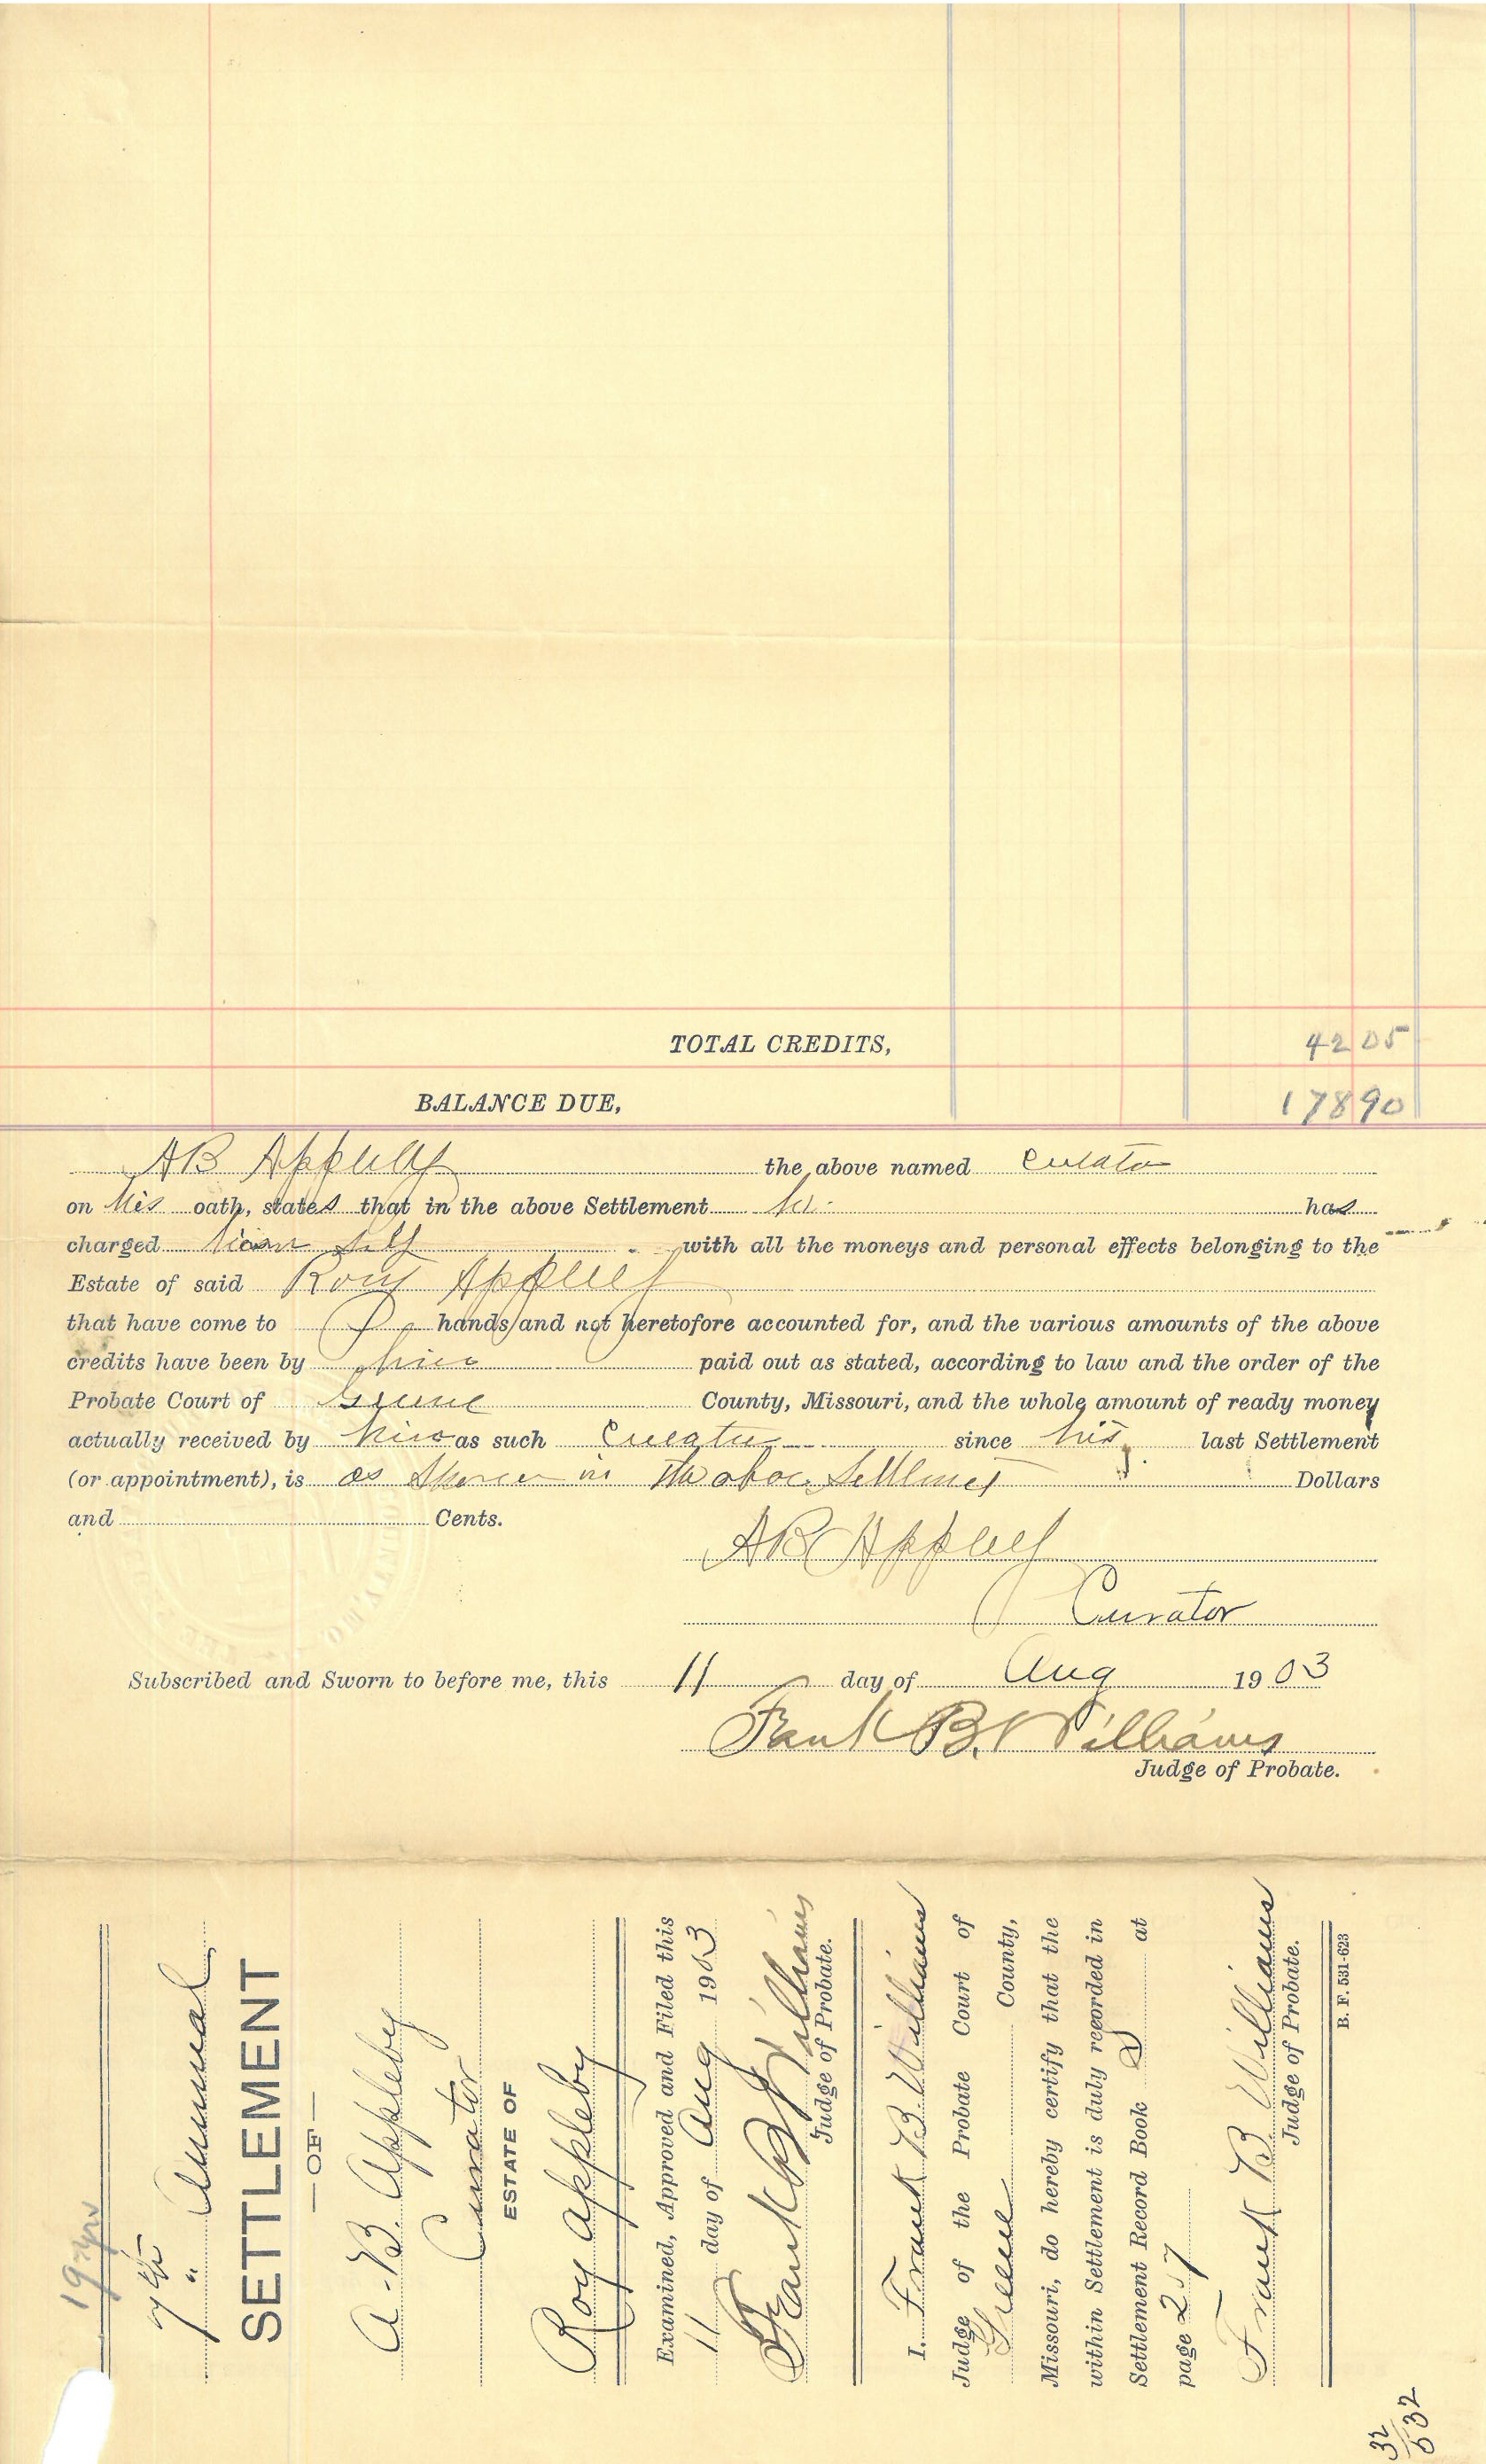 TOTAL CREDITS, 42 05
BALANCE DUE, 178 90
AB Appleby the above named Curator
on his oath, states that in the above Settlement he has
charged him self with all the moneys and personal effects belonging to the
Estate of said Roy Appleby
that have come to hands and not heretofore accounted for, and the various amounts of the above
credits have been by him paid out as stated, according to law and the order of the
Probate Court of Greene County, Missouri, and the whole amount of ready money
actually received by him as such Curator since his last Settlement
(or appointment), is as shown in the above Settlement Dollars
and Cents.
AB Appleby
Curator
Subscribed and Sworn to before me, this 11 day of Aug 1903
Frank B. Williams
Judge of Probate.
7th
" Annual
SETTLEMENT
—OF—
A. B. Appleby
Curator
ESTATE OF
Roy Appleby
Examined, Approved and Filed this
11 day of Aug 1903
Frank B Williams
Judge of Probate.
I, Frank B. Williams
Judge of the Probate Court of
Greene County,
Missouri, do hereby certify that the
within Settlement is duly recorded in
Settlement Record Book at
page
Frank B. Williams
Judge of Probate.
B. F. 531-623
32
532